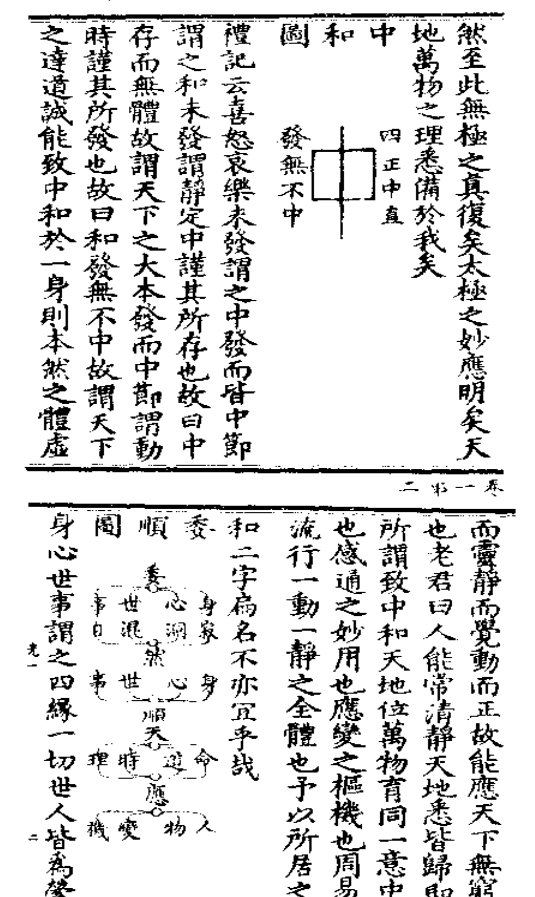 然至此無極之真復矣太極之妙應明矣天
地萬物之理悉備於我矣
中和圖
四正中直
發無不中
禮記云喜怒哀樂未發謂之中發而皆中節
謂之和未發謂靜定中謹其所存也故曰中
存而無體故謂天下之大本發而中節謂動
時謹其所發也故曰和發無不中故謂天下
之達道誠能致中和於一身則本然之體虛
卷一第二
而靈靜而覺動而正故能應天下無窮
也老君曰人能常清靜天地悉皆歸即
所謂致中和天地位萬物育同一意中
也感通之妙用也應變之樞機也周易
流行一動一靜之全體也予以所居之
和二字扁名不亦宜乎哉
委順圖
委
身心世事
寂洞混自
然
身心世事
順天
命道時理
應
人物變機
身心世事謂之四緣一切世人皆為縈
光一
二